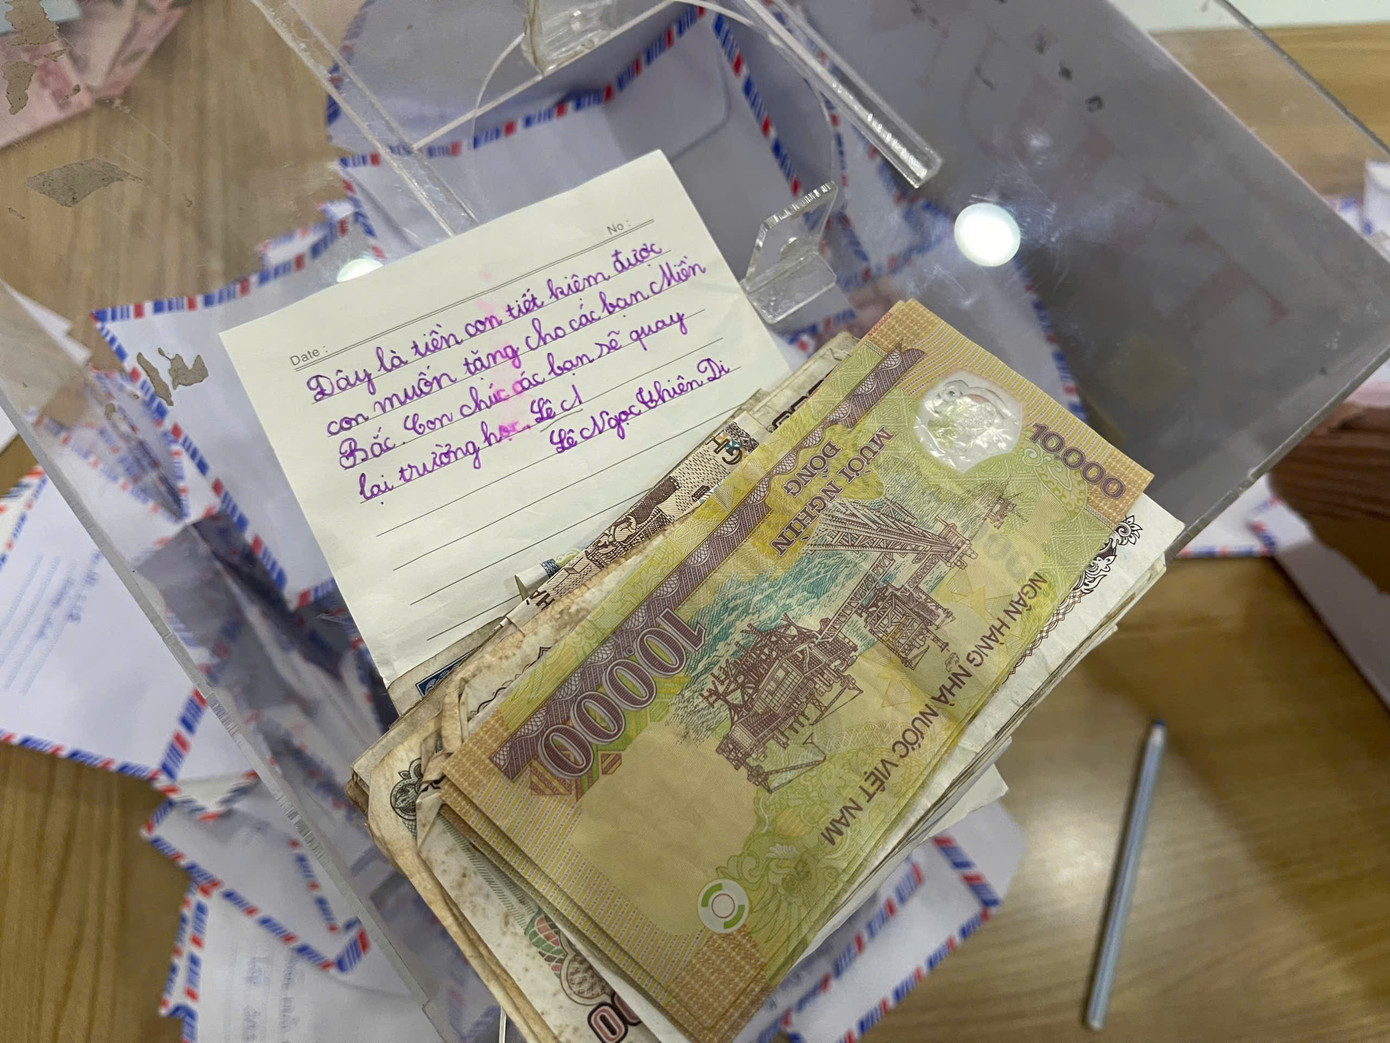 No :
Date :
Đây là tiền con tiết kiệm được
con muốn tặng cho các bạn Miền
Bắc. Con chúc các bạn sẽ quay
lại trường học.
Lê Ngọc Thiên Di
10000
MƯỜI NGHÌN
ĐỒNG
10000
NGÂN HÀNG NHÀ NƯỚC VIỆT NAM